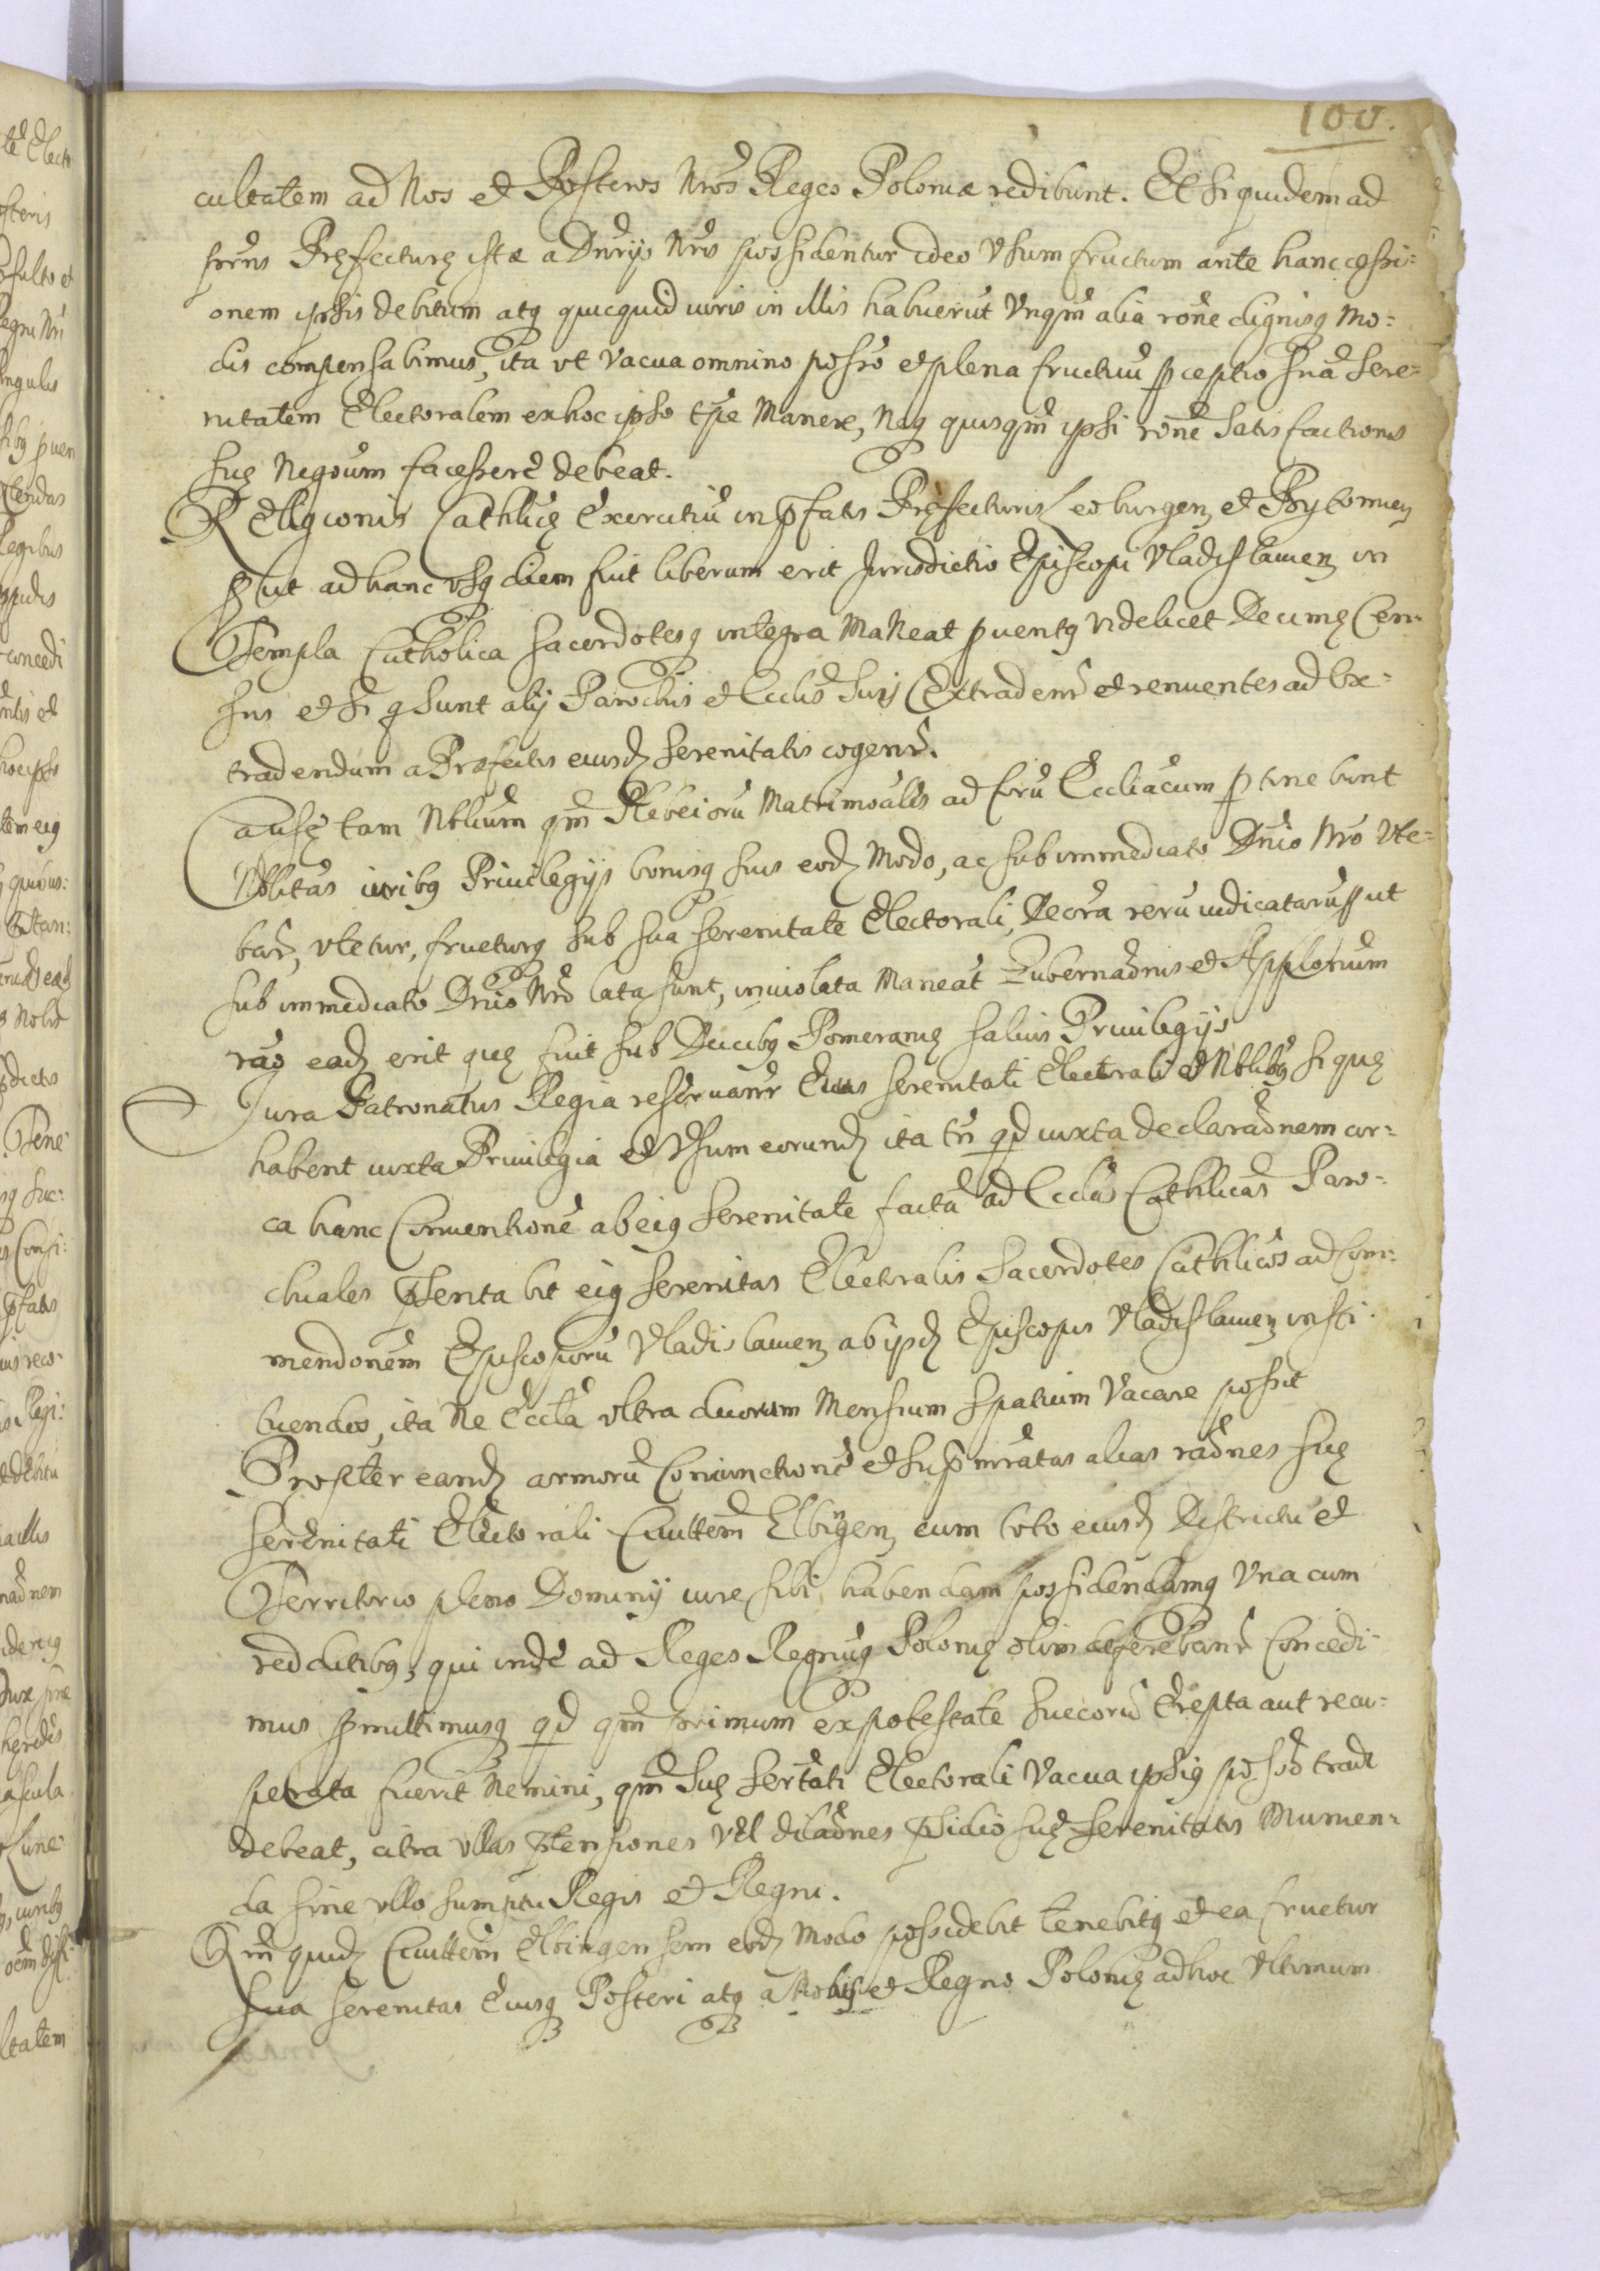 100.
cultatem ad Nos et Posteros Nros Reges Poloniæ redibunt. Et siquidem ad
præns Præfecturę istæ a Dnrijs Nris possidentur ideo Vsum fructum ante hanc cessi-
onem ipsis debitum atq quicquid iuris in illis habuerut Vnqm alia rone dignisq Mo-
dis compensabimus, ita vt Vacua omnino possio et plena fructuu pceptio Sua Sere-
nitatem Electoralem ex hoc ipso tpe Manere, Neq quisqm ipsi rone Satisfactionis
Suę Negoium facessere debeat.
Religionis Cathlicę Exercitiu in pfatis Pręfecturis Leoburgen et Bytomien
sicut ad hanc vsq diem fuit liberum erit Jurisdictio Episcopi Vladislauien in
Templa Catholica Sacerdotesq integra Maneat puentq videlicet Decimę Cen-
sus et si q sunt alij Parochis et Ecclis Suis Extradent et renuentes ad Ex-
tradendum a Præfectis eiusd Serenitatis cogent.
Causę tam Nbliium qm Plebeioru Matrimoales ad foru Eccliacum ptinebunt
Nblitas iuribq Priuilegijs bonisq suis eod Modo, ac sub immediato Dnio Nro Vte-
batr, vtetur, frueturq sub sua Serenitate Electorali, Decra reru iudicataru sicut
sub immediato Dnio Nro lata sunt, inuiolata Maneat Gubernaonis et Applonum
rao ead erit quę fuit sub Ducibq Pomeranię saluis Priuilegijs
Jura Patronatus Regia reseruantr Eius Serenitati Electorali et Nblibq si quę
habent iuxta Priuilegia et Vsum eorund ita tn qd iuxta declaraonem cir-
ca hanc Conuentione ab eiq Serenitate facta ad Ecclas Cathlicas Paro-
chiales psentabit eiq Serenitas Electoralis Sacerdotes Cathlicos ad Com-
mendonem Episcoporu Vladislauien ab ipsd Episcopis Vladislauien insti-
tuendos, ita Ne Eccla vltra duorum Mensium Spatium Vacare possit
Propter eand armoru Coniunctione et sup nrratas alias raones suę
Serenitati Electorali Ciuittem Elbingen cum toto eiusd Districtu et
Territorio pleno Dominij iure sibi habendam possidendamq Vna cum
redditibq, qui inde ad Reges Regnuq Polonię olim deferebant Concedi-
mus pmittimusq qd qm primum ex potestate Suecoru Erepta aut recu-
perata fuerit Nemini, qm Suę Sertati Electorali Vacua ipsiq possio tradi
debeat, citra vllas ptensiones Vel dilaones psidio suę Serenitatis Munien-
da sine vllo sumptu Regis et Regni.
Qm quid Ciuittem Elbingensem eod Modo possidebit tenebitq et ea fruetur
Sua Serenitas Eiusq Posteri atq a Nobis et Regno Polonię adhoc Vltimum